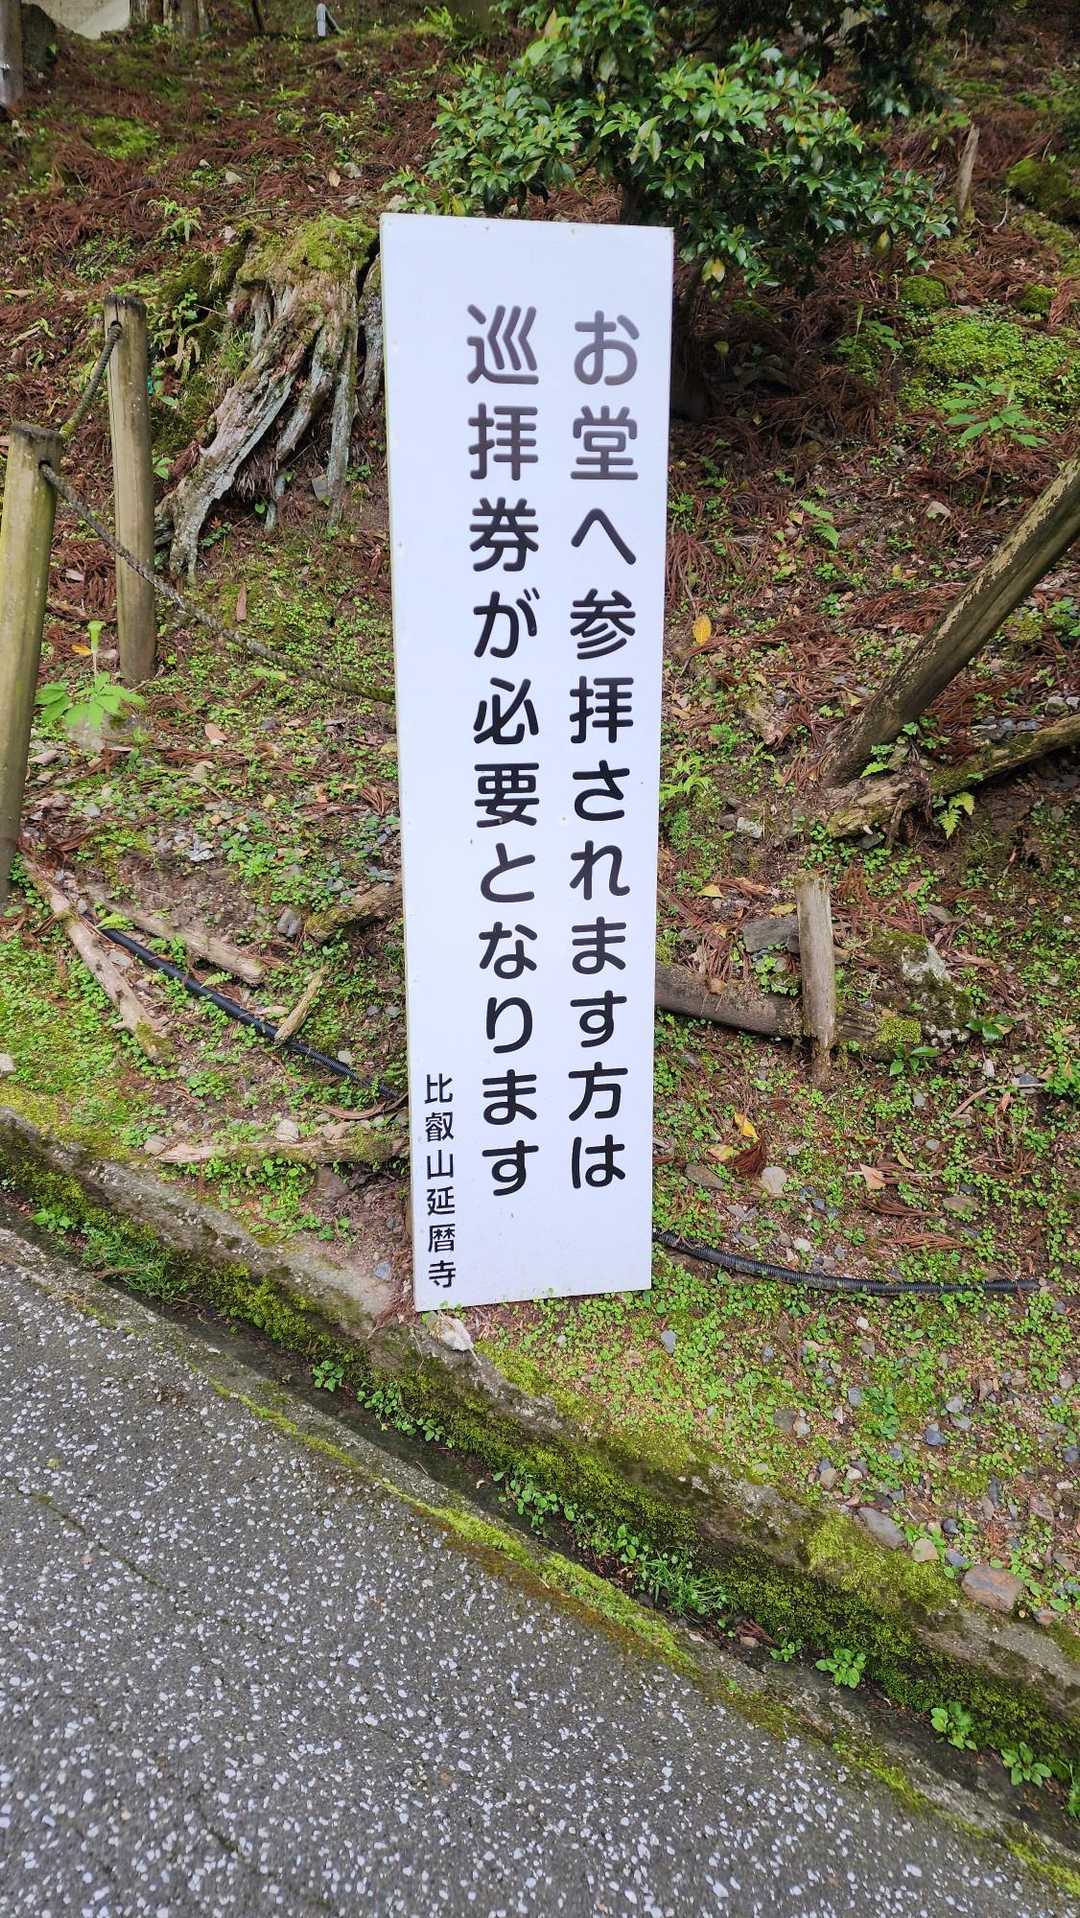 お堂へ参拝されます方は
巡拝券が必要となります
比叡山延暦寺